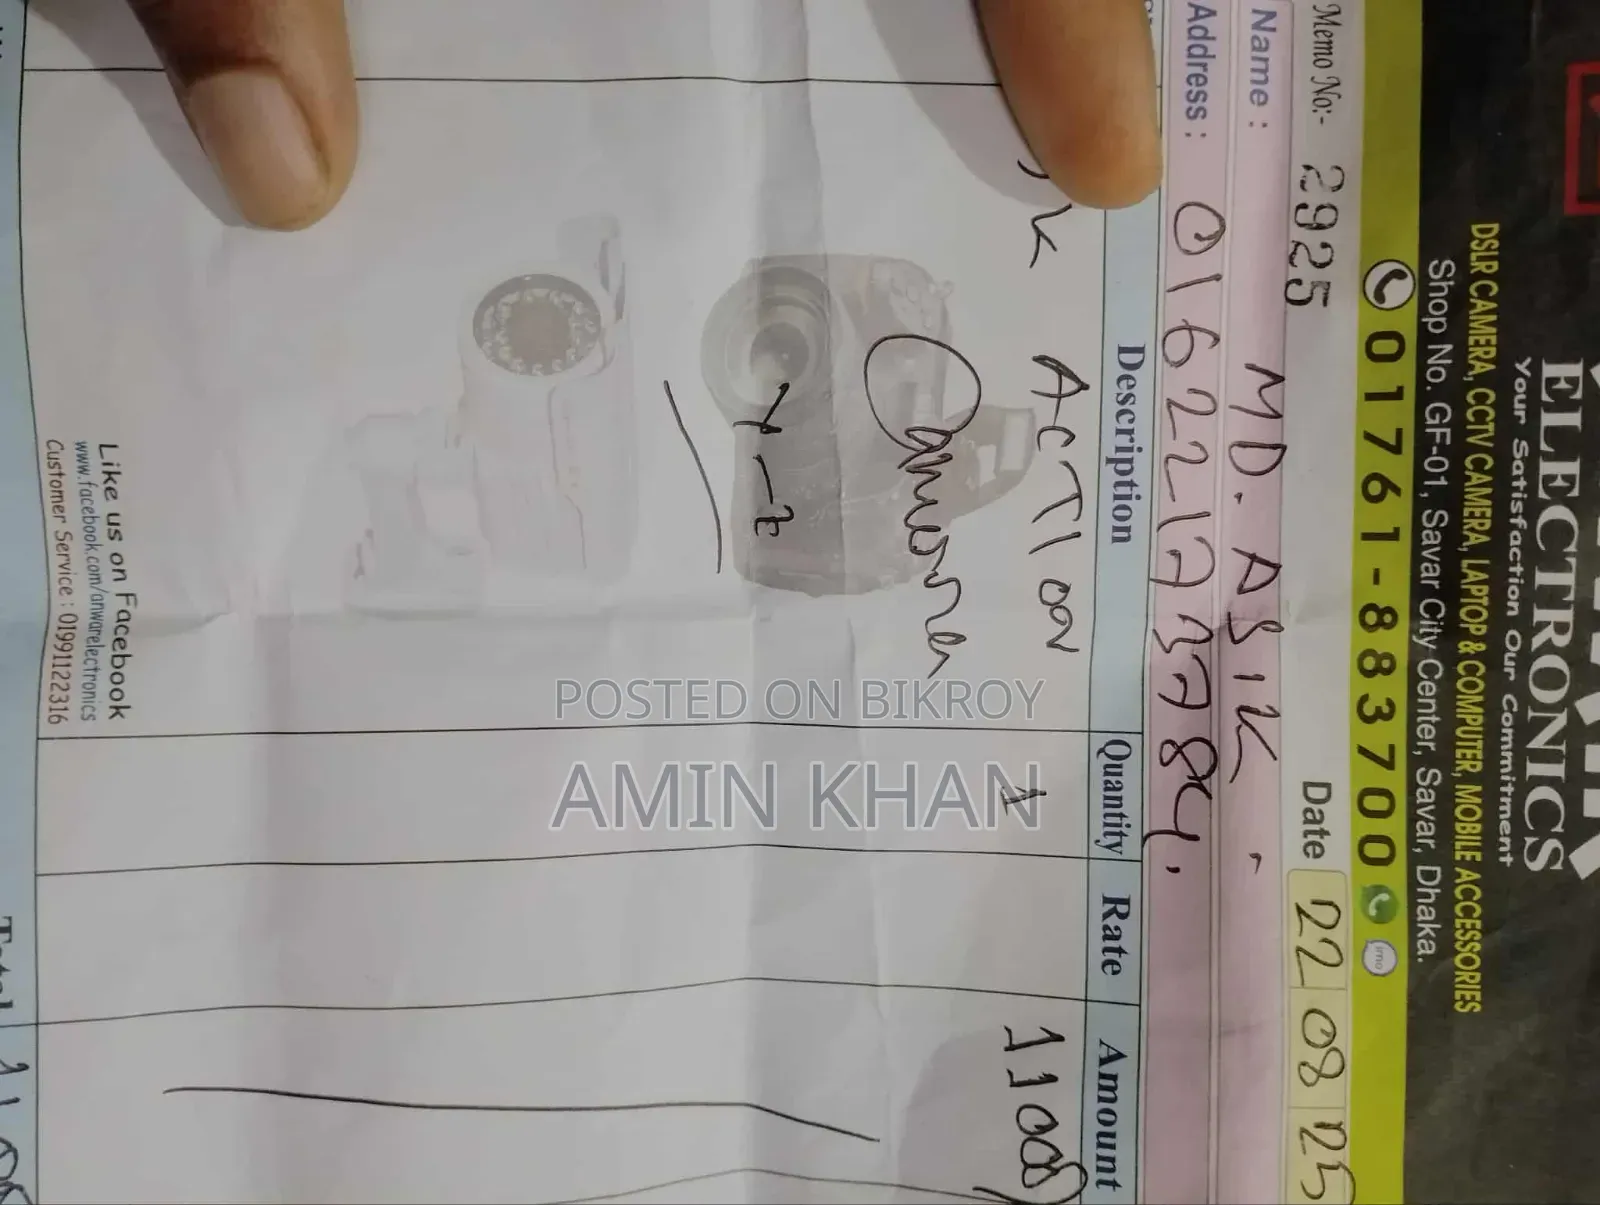 ELECTRONICS
Your Satisfaction Our Commitment
DSLR CAMERA, CCTV CAMERA, LAPTOP & COMPUTER, MOBILE ACCESSORIES
Shop No. GF-01, Savar City Center, Savar, Dhaka.
01761-883700
imo
Memo No:- 2925 Date 22 08 25
Name : MD. ASIK.
Address : 01622173784.
Description Quantity Rate Amount
K ACTION 1 1100
Camera
Like us on Facebook
www.facebook.com/anwarelectronics
Customer Service : 01991122316
Total
POSTED ON BIKROY
AMIN KHAN